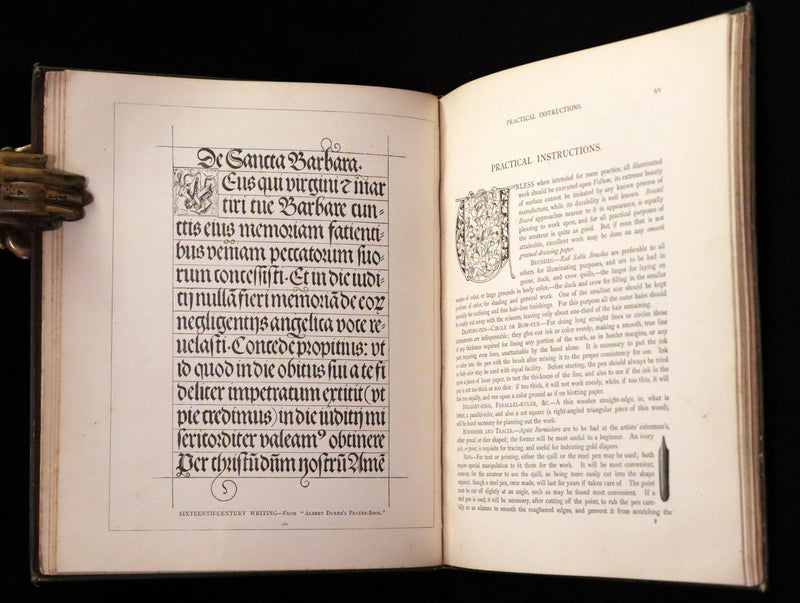 De Sancta Barbara.
Eus qui virgini ⁊ mar
tiri tue Barbare cun-
ctis eius memoriam facienti-
bus veniam peccatorum suo-
rum concessisti. Et in die iudi-
cij nullā fieri memoriā de eoꝝ
negligentijs angelica voce re-
uelasti. Concede propitius: vt
id quod in die obitus sui a te fi
deliter impetratum extitit (vt
pie credimus) in die iudicij mi
sericorditer valeam⁹ obtinere
Per christū dn̄m nostrū Amē
SIXTEENTH-CENTURY WRITING—FROM "ALBERT DURER'S PRAYER-BOOK."
xiv
PRACTICAL INSTRUCTIONS.
XV
PRACTICAL INSTRUCTIONS.
UNLESS when intended for mere practice, all illuminated
work should be executed upon Vellum: its extreme beauty
of surface cannot be imitated by any known process of
manufacture, while its durability is well known. Bristol
Board approaches nearest to it in appearance, is equally
pleasing to work upon, and for all practical purposes of
the amateur is quite as good. But, if even that is not
attainable, excellent work may be done on any smooth
grained drawing paper.
BRUSHES.—Red Sable Brushes are preferable to all
others for illuminating purposes, and are to be had in
goose, duck, and crow quills,—the larger for laying on
washes of color, or large grounds in body color,—the duck and crow for filling in the smaller
portions of color, for shading and general work. One of the smallest size should be kept
specially for outlining and fine hair-line finishings. For this purpose all the outer hairs should
be neatly cut away with the scissors, leaving only about one-third of the hair remaining.
DRAWING-PEN—CIRCLE OR BOW-PEN.—For doing long straight lines or circles these
instruments are indispensable; they give out ink or color evenly, making a smooth, true line
of any thickness required for lining any portion of the work, as in border margins, or any
part requiring even lines, unattainable by the hand alone. It is necessary to put the ink
or color into the pen with the brush after mixing it to the proper consistency for use. Ink
or body color may be used with equal facility. Before starting, the pen should always be tried
upon a piece of loose paper, to test the thickness of the line, and also to see if the ink in the
pen is not too thick or too thin: if too thick, it will not work evenly, while, if too thin, it will
flow too rapidly, and run upon a color ground as if on blotting paper.
STRAIGHT-EDGE, PARALLEL-RULER, &c.—A thin wooden straight-edge, or, what is
better, a parallel-ruler, and also a set square (a right-angled triangular piece of thin wood),
will be found necessary for planning out the work.
BURNISHER AND TRACER.—Agate Burnishers are to be had at the artists' colormen's,
either pencil or claw shaped; the former will be most useful to a beginner. An ivory
style, or point, is requisite for tracing, and useful for indenting gold diapers.
PENS—For text or printing, either the quill or the steel pen may be used; both
require special manipulation to fit them for the work. It will be most convenient,
however, for the amateur to use the quill, as being more easily cut into the shape
required; though a steel pen, once made, will last for years if taken care of. The point
must be cut off slightly at an angle, such as may be found most convenient. If a
steel pen is used, it will be necessary, after cutting off the point, to rub the pen care-
fully on an oilstone to smooth the roughened edges, and prevent it from scratching the
B